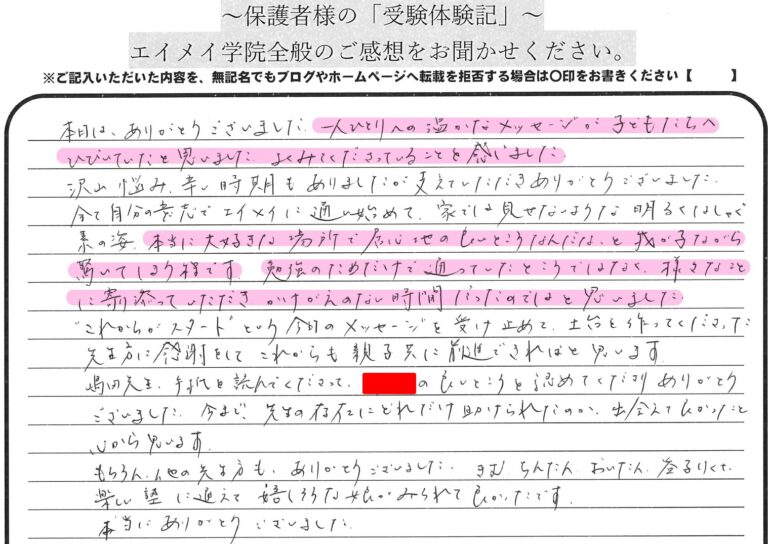 ～保護者様の「受験体験記」～
エイメイ学院全般のご感想をお聞かせください。
※ご記入いただいた内容を、無記名でもブログやホームページへ転載を拒否する場合は〇印をお書きください【　　】
本日は、ありがとうございました。一人ひとりへの温かなメッセージが子どもたちへ
ひびいていたと思いました。よくみてくださっていることを感じました。
沢山悩み、辛い時期もありましたが支えていただきありがとうございました。
全て自分の意志でエイメイに通い始めて、家では見せないような明るくはしゃぐ
素の姿、本当に大好きな場所で居心地の良いところなんだな、と我が子ながら
驚いてしまう程です。勉強のためだけで通っていたところではなく、様々なこと
に寄り添っていただき、かけがえのない時間だったのではと思いました。
"これからがスタート"という今日のメッセージを受け止めて、土台を作ってくださった
先生方に感謝をして これからも親子共に前進できればと思います。
嶋田先生、手紙を読んでくださって、の良いところを認めてくださりありがとう
ございました。今まで、先生の存在にどれだけ助けられたのか、出会えて良かったと
心から思います。
もちろん、他の先生方も、ありがとうございました。きむ ちんたん、おいたん、
楽しい塾に通えて嬉しそうな娘がみられて良かったです。
本当にありがとうございました。